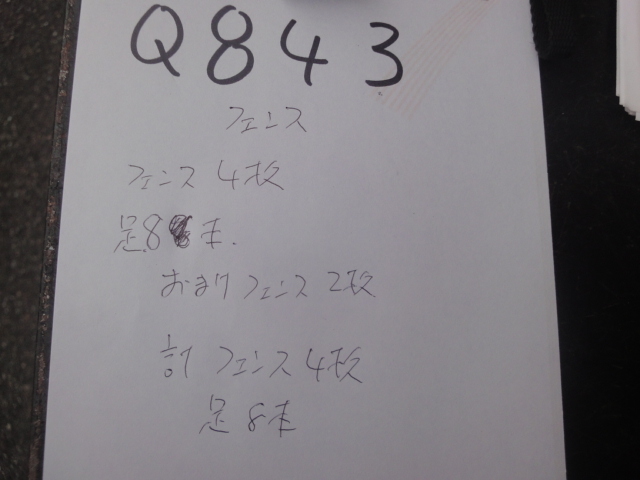 Q843
フェンス
フェンス 4枚
足8本.
おまけ フェンス 2枚
計 フェンス 4枚
足 8本